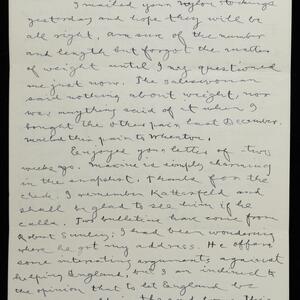 I mailed your nylon stockings
yesterday and hope they will be
all right, am sure of the number
and length but forgot the matter
of weight until I was questioned
me just now. The saleswoman
said nothing about weight, nor
was anything said of it when I
bought the other pair last December.
mailed this pair to Wheaton.
Enjoyed your letter of two
weeks ago. Maxine is simply charming
in the snapshot. Thanks for the
check. I remember Katterfeld and
shall be glad to see him if he
calls. Two bulletins have come from
Robert Smiley; I had been wondering
where he got my address. He offers
some interesting arguments against
helping England, but I am inclined to
the opinion that to let England be